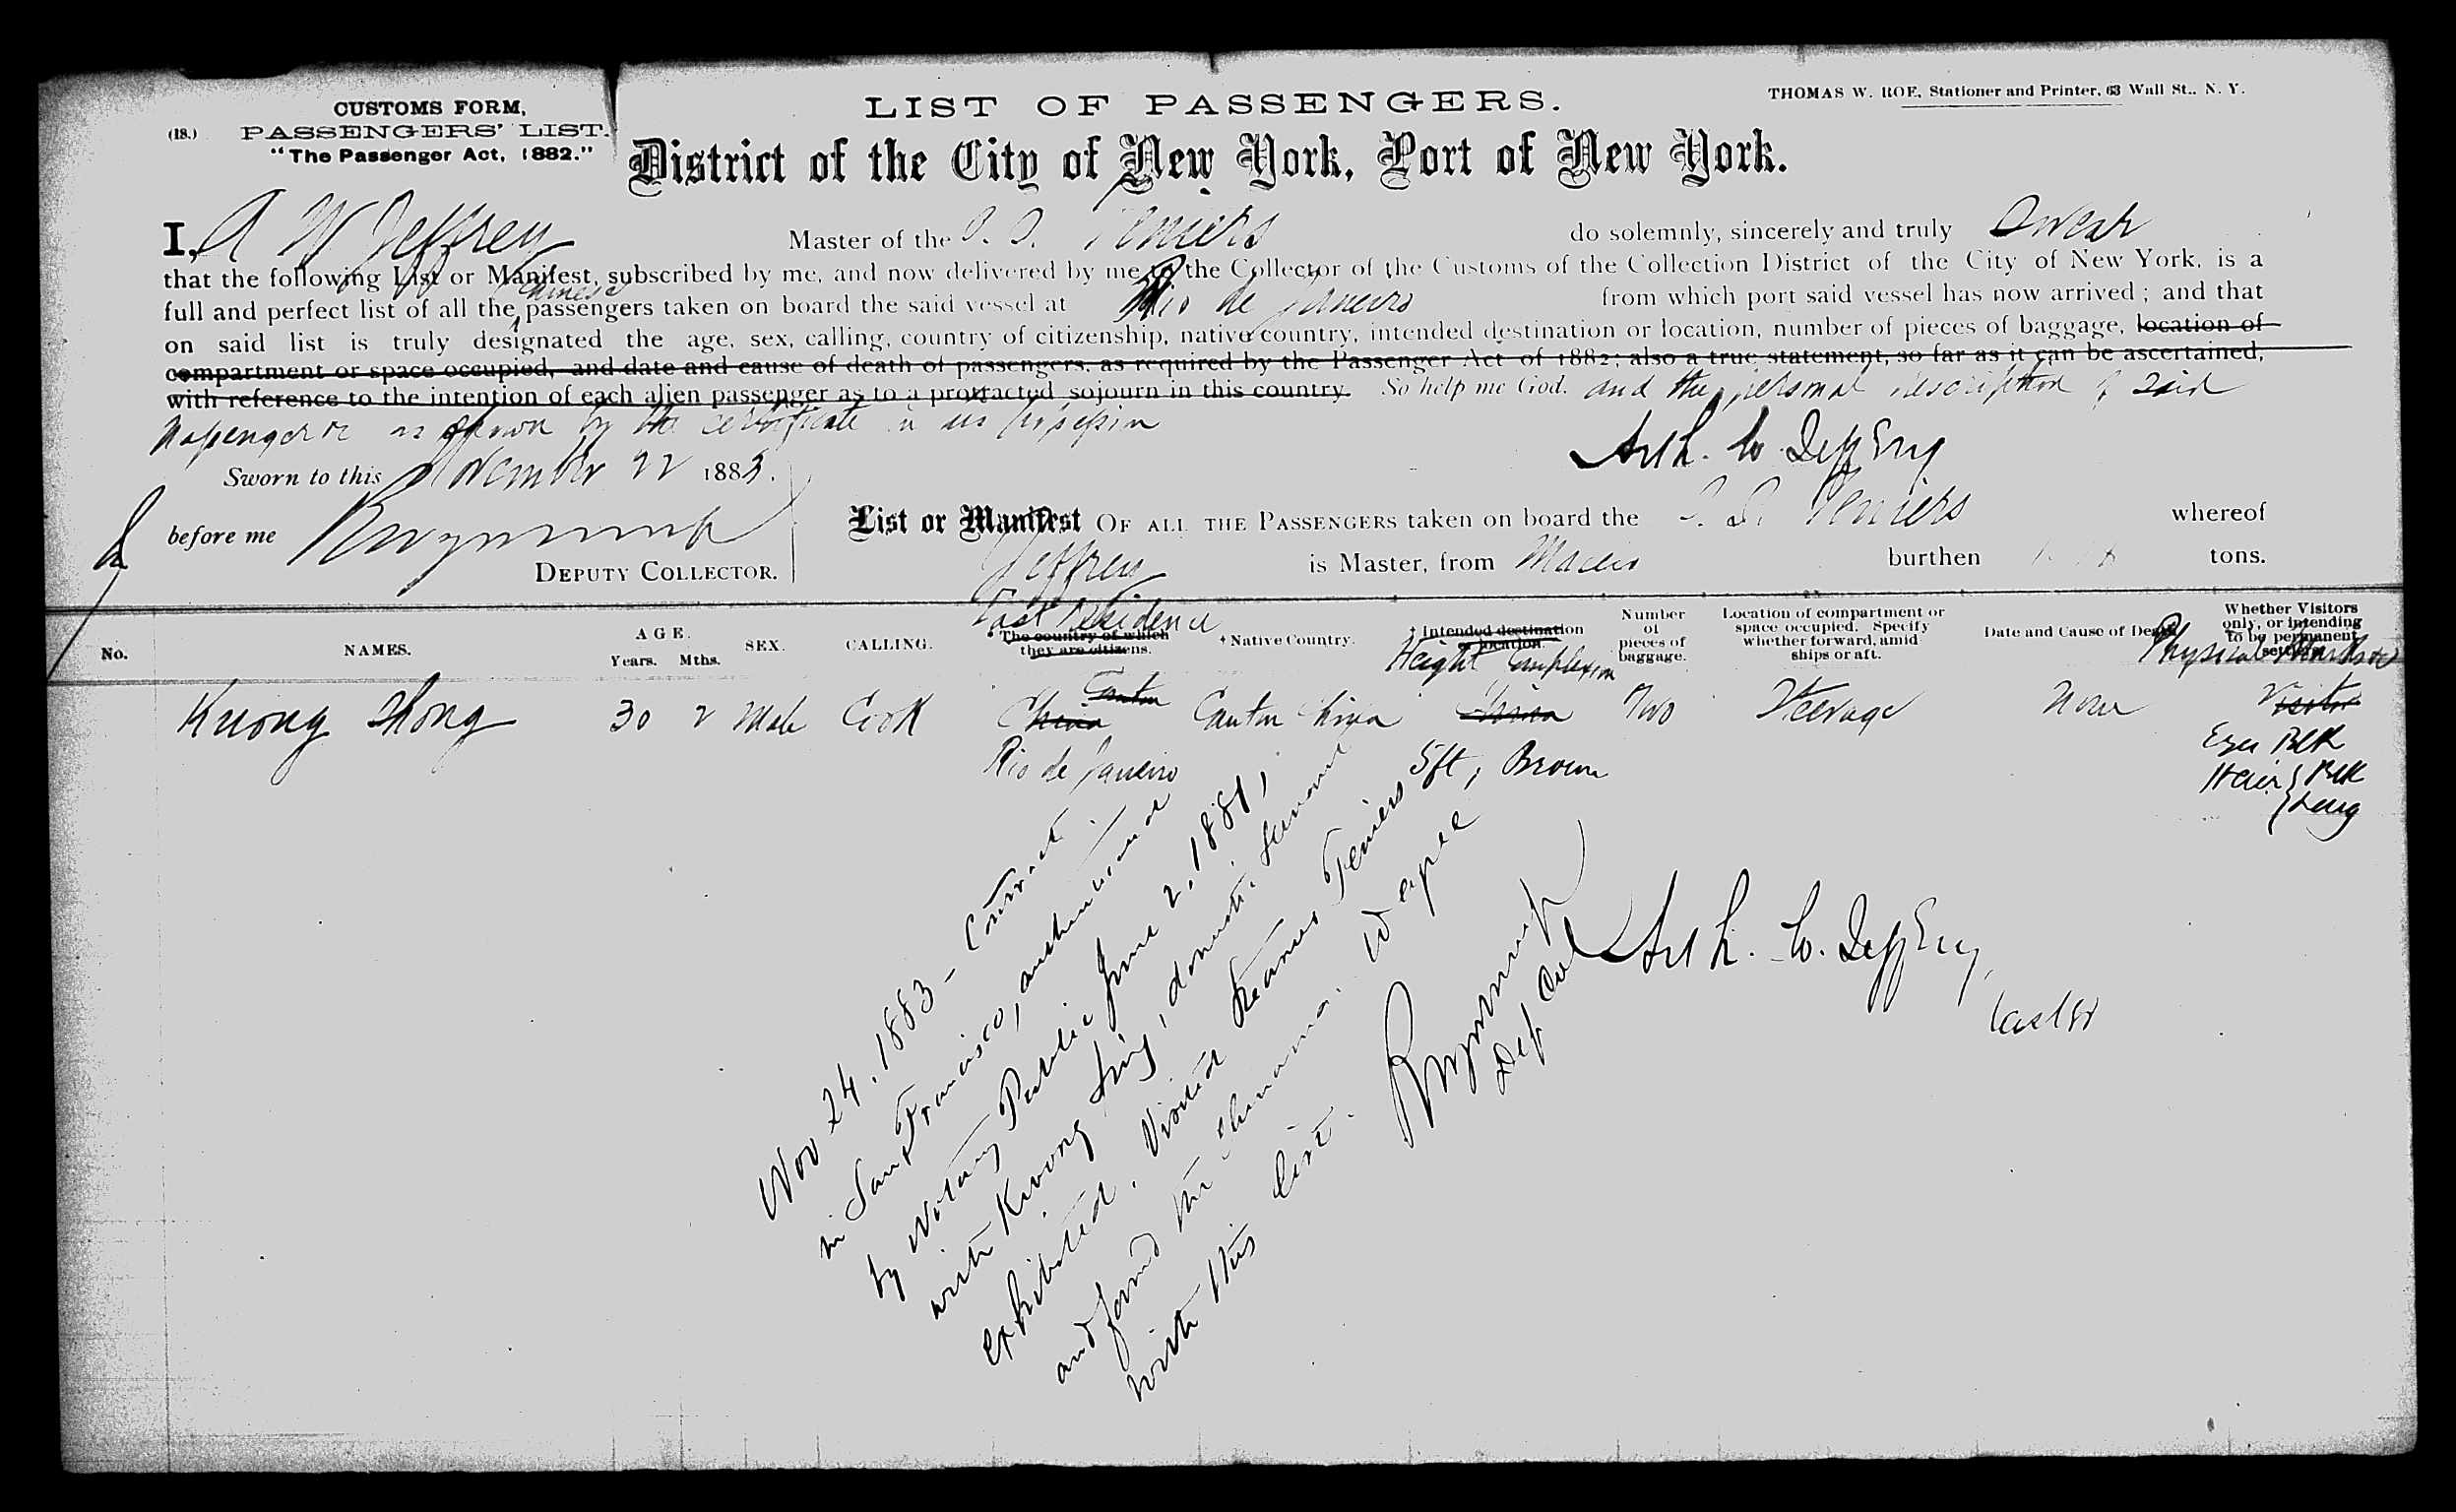 CUSTOMS FORM,
(18.) PASSENGERS' LIST.
"The Passenger Act, 1882."
LIST OF PASSENGERS.
THOMAS W. ROE, Stationer and Printer, 63 Wall St., N. Y.
District of the City of New York, Port of New York.
I, A W Jeffrey Master of the S. S. Teniers do solemnly, sincerely and truly Swear
that the following List or Manifest, subscribed by me, and now delivered by me to the Collector of the Customs of the Collection District of the City of New York, is a
full and perfect list of all the Chinese passengers taken on board the said vessel at Rio de Janeiro from which port said vessel has now arrived; and that
on said list is truly designated the age, sex, calling, country of citizenship, native country, intended destination or location, number of pieces of baggage, location of
compartment or space occupied, and date and cause of death of passengers, as required by the Passenger Act of 1882; also a true statement, so far as it can be ascertained,
with reference to the intention of each alien passenger as to a protracted sojourn in this country. So help me God. and the personal description of said
passenger as shown by the certificate in his
Arth. W. Jeffrey
Sworn to this November 22 1883.
before me
DEPUTY COLLECTOR.
List or Manifest OF ALL THE PASSENGERS taken on board the S. S. Teniers whereof
Jeffrey is Master, from Maceio burthen tons.
No.
NAMES.
AGE.
Years. Mths.
SEX.
CALLING.
Last Residence
* The country of which they are citizens.
† Native Country.
† Intended destination or location.
Height Complexion
Number of pieces of baggage.
Location of compartment or space occupied. Specify whether forward, amid ships or aft.
Date and Cause of Death.
Whether Visitors only, or intending to be permanent settlers.
Physical Marks
Kuong Thong 30 2 Male Cook China Canton Canton China China Two Steerage None Visitor
Rio de Janeiro 5ft, Brown
Eyes Blk
Hair Blk
long
Nov 24. 1883 - Contract
in San Francisco, authenticated
by Notary Public June 2, 1881,
with Kwong Sing, domestic servant
exhibited. Visited Steamer Teniers
and found the Chinaman. agree
with this list.
Dep Col
Arth. W. Jeffrey,